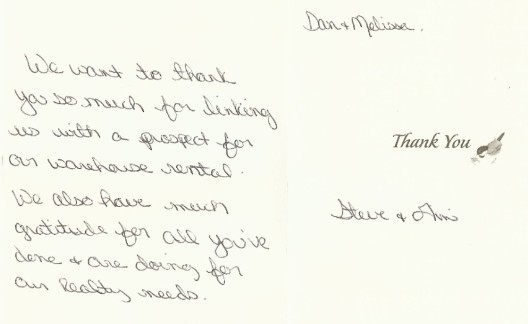 We want to thank
you so much for linking
us with a prospect for
our warehouse rental.
We also have much
gratitude for all you've
done + are doing for
our Realty needs.
Dan + Melissa.
Thank You
Steve +